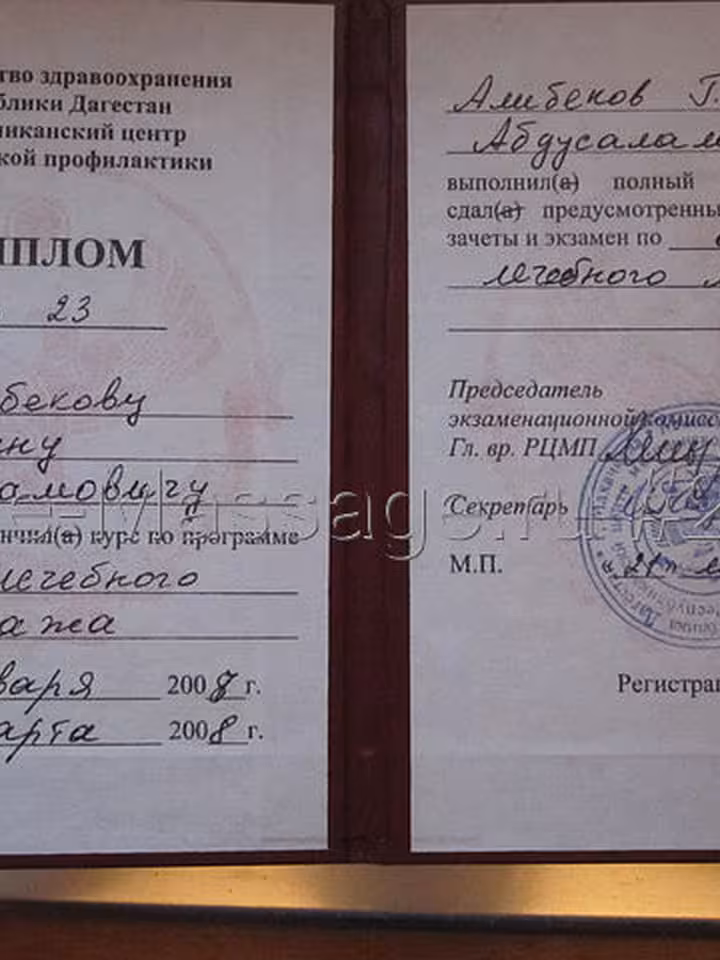 тво здравоохранения
блики Дагестан
ликанский центр
кой профилактики
ИПЛОМ
23
бекову
ну
амовичу
нчил(а) курс по программе
лечебного
ажа
варя 2008 г.
арта 2008 г.
Алибеков Г.
Абдусалам
выполнил(а) полный
сдал(а) предусмотренны
зачеты и экзамен по
лечебного
Председатель
экзаменационной комисс
Гл. вр. РЦМП
Секретарь
М.П.
Регистрац